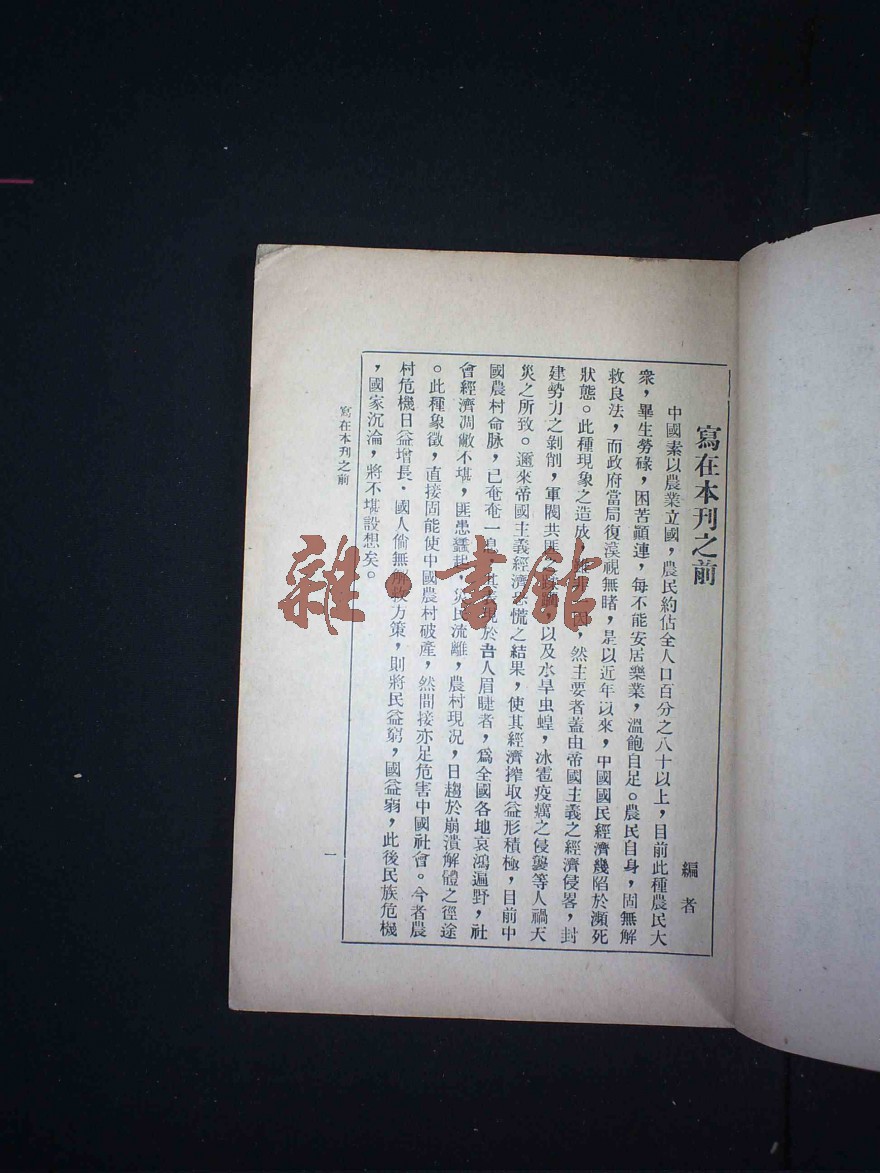 寫在本刊之前
編者
中國素以農業立國，農民約佔全人口百分之八十以上，目前此種農民大
衆，畢生勞碌，困苦顚連，每不能安居樂業，溫飽自足。農民自身，固無解
救良法，而政府當局復漠視無睹，是以近年以來，中國國民經濟幾陷於瀕死
狀態。此種現象之造成，雖非一因，然主要者蓋由帝國主義之經濟侵畧，封
建勢力之剝削，軍閥共匪之，以及水旱虫蝗，冰雹疫癘之侵襲等人禍天
災之所致。邇來帝國主義經濟恐慌之結果，使其經濟搾取益形積極，目前中
國農村命脉，已奄奄一息，其表現於吾人眉睫者，爲全國各地哀鴻遍野，社
會經濟凋敝不堪，匪患蠭起，災民流離，農村現况，日趨於崩潰解體之徑途
。此種象徵，直接固能使中國農村破產，然間接亦足危害中國社會。今者農
村危機日益增長．國人倘無解救方策，則將民益窮，國益弱，此後民族危機
，國家沉淪，將不堪設想矣。
寫在本刊之前
一
雜·書館